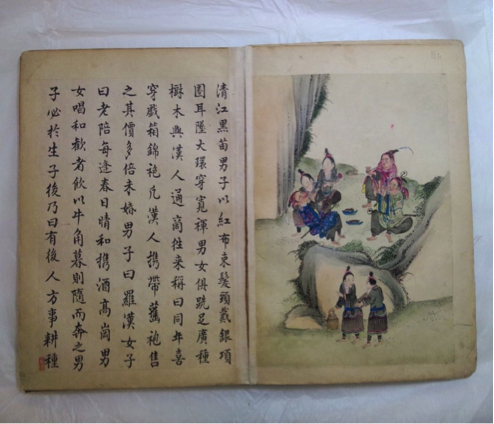 清江黑苗男子以紅布束髮頭戴銀項
圈耳墜大環穿寬褌男女俱跣足廣種
樹木與漢人通商徃来稱曰同年喜
穿戲箱錦袍凡漢人携帶舊袍售
之其價多倍未婚男子曰羅漢女子
曰老陪每逢春日晴和携酒高崗男
女唱和歡者飲以牛角暮則隨而奔之男
子必於生子後乃曰有後人方事耕種